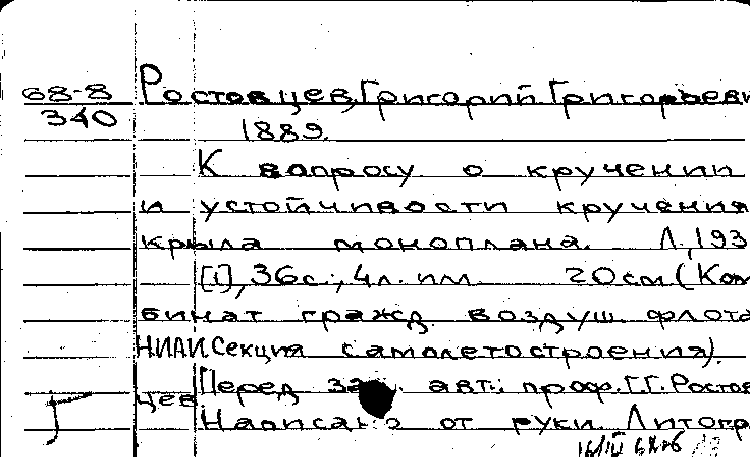 68-8
340
Ростовцев, Григорий Григорьеви
1889.
К вопросу о кручении
и устойчивости кручения
крыла моноплана. Л, 193
[1], 36 с.; 4 л. пл. 20 см (Ком
бинат гражд. воздуш. флота
НИАИ. Секция самолетостроения).
Перед авт.: проф. Г.Г. Ростов
цев
Написано от руки. Литогр